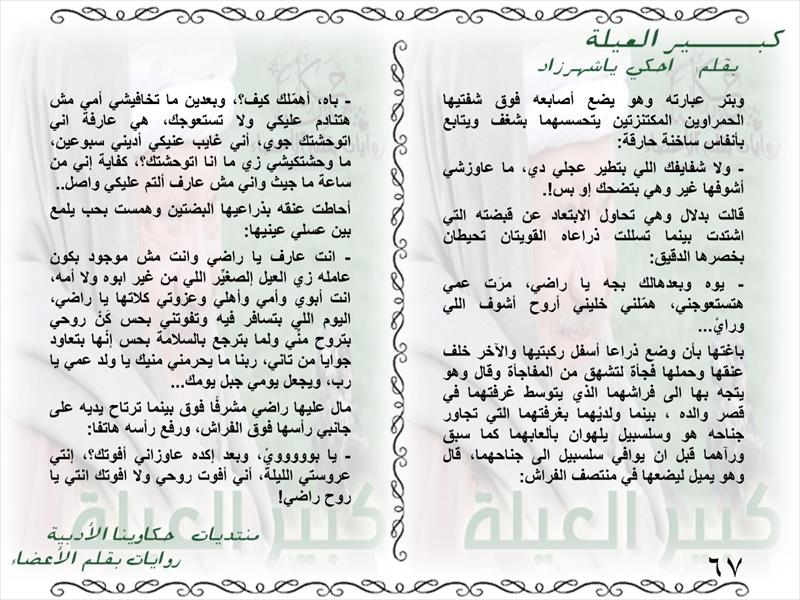 كبير العيلة
بقلم: احكي ياشهرزاد
وبتر عبارته وهو يضع أصابعه فوق شفتيها
الحمراوين المكتنزتين يتحسسهما بشغف ويتابع
بأنفاس ساخنة حارقة:
- ولا شفايفك اللي بتطير عجلي دي، ما عاوزشي
أشوفها غير وهي بتضحك إو بس!.
قالت بدلال وهي تحاول الابتعاد عن قبضته التي
اشتدت بينما تسللت ذراعاه القويتان تحيطان
بخصرها الدقيق:
- يوه وبعدهالك بجه يا راضي، مرَت عمي
هتستعوجني، همّلني خليني أروح أشوف اللي
ورايّ...
باغتها بأن وضع ذراعا أسفل ركبتيها والآخر خلف
عنقها وحملها فجأة لتشهق من المفاجأة وقال وهو
يتجه بها الى فراشهما الذي يتوسط غرفتهما في
قصر والده ، بينما ولديْهما بغرفتهما التي تجاور
جناحه هو وسلسبيل يلهوان بألعابهما كما سبق
ورآهما قبل ان يوافي سلسبيل الى جناحهما، قال
وهو يميل ليضعها في منتصف الفراش:
- باه، أهمّلك كيف؟، وبعدين ما تخافيشي أمي مش
هتنادم عليكي ولا تستعوجك، هي عارفة اني
إتوحشتك جوي، أني غايب عنيكي أديني سبوعين،
ما وحشتكيشي زي ما انا اتوحشتك؟، كفاية إني من
ساعة ما جيت واني مش عارف ألتم عليكي واصل..
أحاطت عنقه بذراعيها البضتين وهمست بحب يلمع
بين عسلي عينيها:
- انت عارف يا راضي وانت مش موجود بكون
عامله زي العيل إلصغيّر اللي من غير ابوه ولا أمه،
انت أبوي وأمي وأهلي وعزوتي كلاتها يا راضي،
اليوم اللي بتسافر فيه وتفوتني بحس كَنْ روحي
بتروح منِّي ولما بترجع بالسلامة بحس إنّها بتعاود
جوايا من تاني، ربنا ما يحرمني منيك يا ولد عمي يا
رب، ويجعل يومي جبل يومك...
مال عليها راضي مشرفًا فوق بينما ترتاح يديه على
جانبي رأسها فوق الفراش، ورفع رأسه هاتفا:
- يا بوووووويْ، وبعد إكده عاوزاني أفوتك؟، إنتي
عروستي الليلة، أني أفوت روحي ولا افوتك انتي يا
روح راضي!
كبير العيلة
كبير العيلة
منتديات حكاوينا الأدبية
روايات بقلم الأعضاء
٦٧